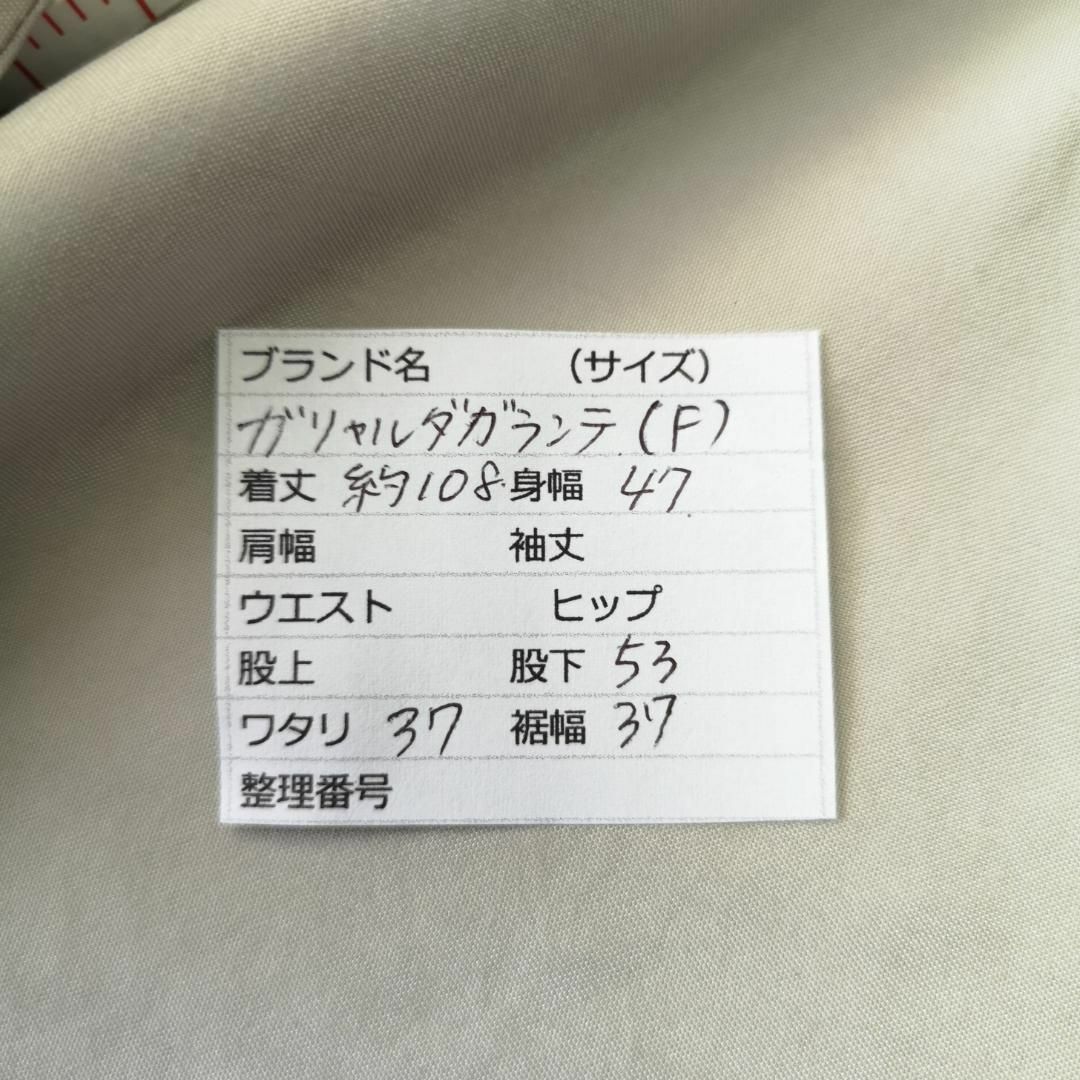 ブランド名 （サイズ）
ガリャルダガランテ（F）
着丈 約108 身幅 47
肩幅 袖丈
ウエスト ヒップ
股上 股下 53
ワタリ 37 裾幅 37
整理番号